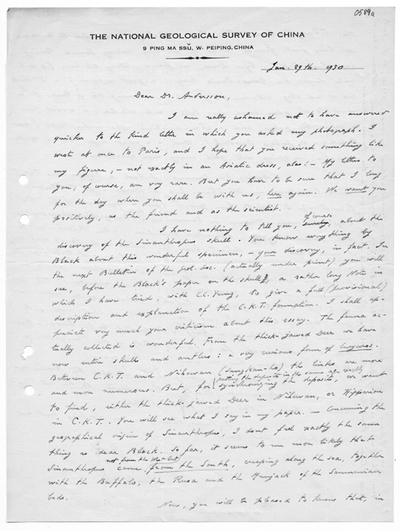 0589a
THE NATIONAL GEOLOGICAL SURVEY OF CHINA
9 PING MA SSŬ, W. PEIPING, CHINA
Jan. 29th. 1930
Dear Dr. Andersson,
I am really ashamed not to have answered
quicker to the kind letter in which you asked my photograph. I
wrote at once to Paris, and I hope that you received something like
my figure, – not exactly in an Asiatic dress, alas! – My letters to
you, of course, are very rare. But you have to be sure that I long
for the day when you shall be with us, here again. We want you
positively, as the friend and as the scientist.
I have nothing to tell you, of course, about the
discovery of the Sinanthropus skull. You know everything by
Black about this wonderful specimen, – your discovery, in fact. In
the next Bulletin of the Geol. Soc. (actually under print) you will
see, before the Black's paper on the skull, a rather long Note in
which I have tried, with C.C. Young, to give a full (provisional)
description and explanation of the C.K.T. formation. I shall ap-
preciate very much your criticism about this essay. The fauna ac-
tually collected is wonderful. From the thick-jawed Deer we have
now entire skulls and antlers: a very curious form of
Between C.K.T. and Nihowan (Sangkan-ho) the links are more
and more numerous. But, for synchronizing the deposits, we want
to find, either the thick-jawed Deer in Nihowan, or Hipparion
in C.K.T. You will see what I say in my paper. – Concerning the
geographical origin of Sinanthropus, I don't feel exactly the same
thing as dear Black. So far, it seems to me more likely that
not from the West but
Sinanthropus came from the South, creeping along the sea, together
with the Buffalo, the Rusa and the Muntjack of the Sanmenian
beds.
Now, you will be pleased to know that, in